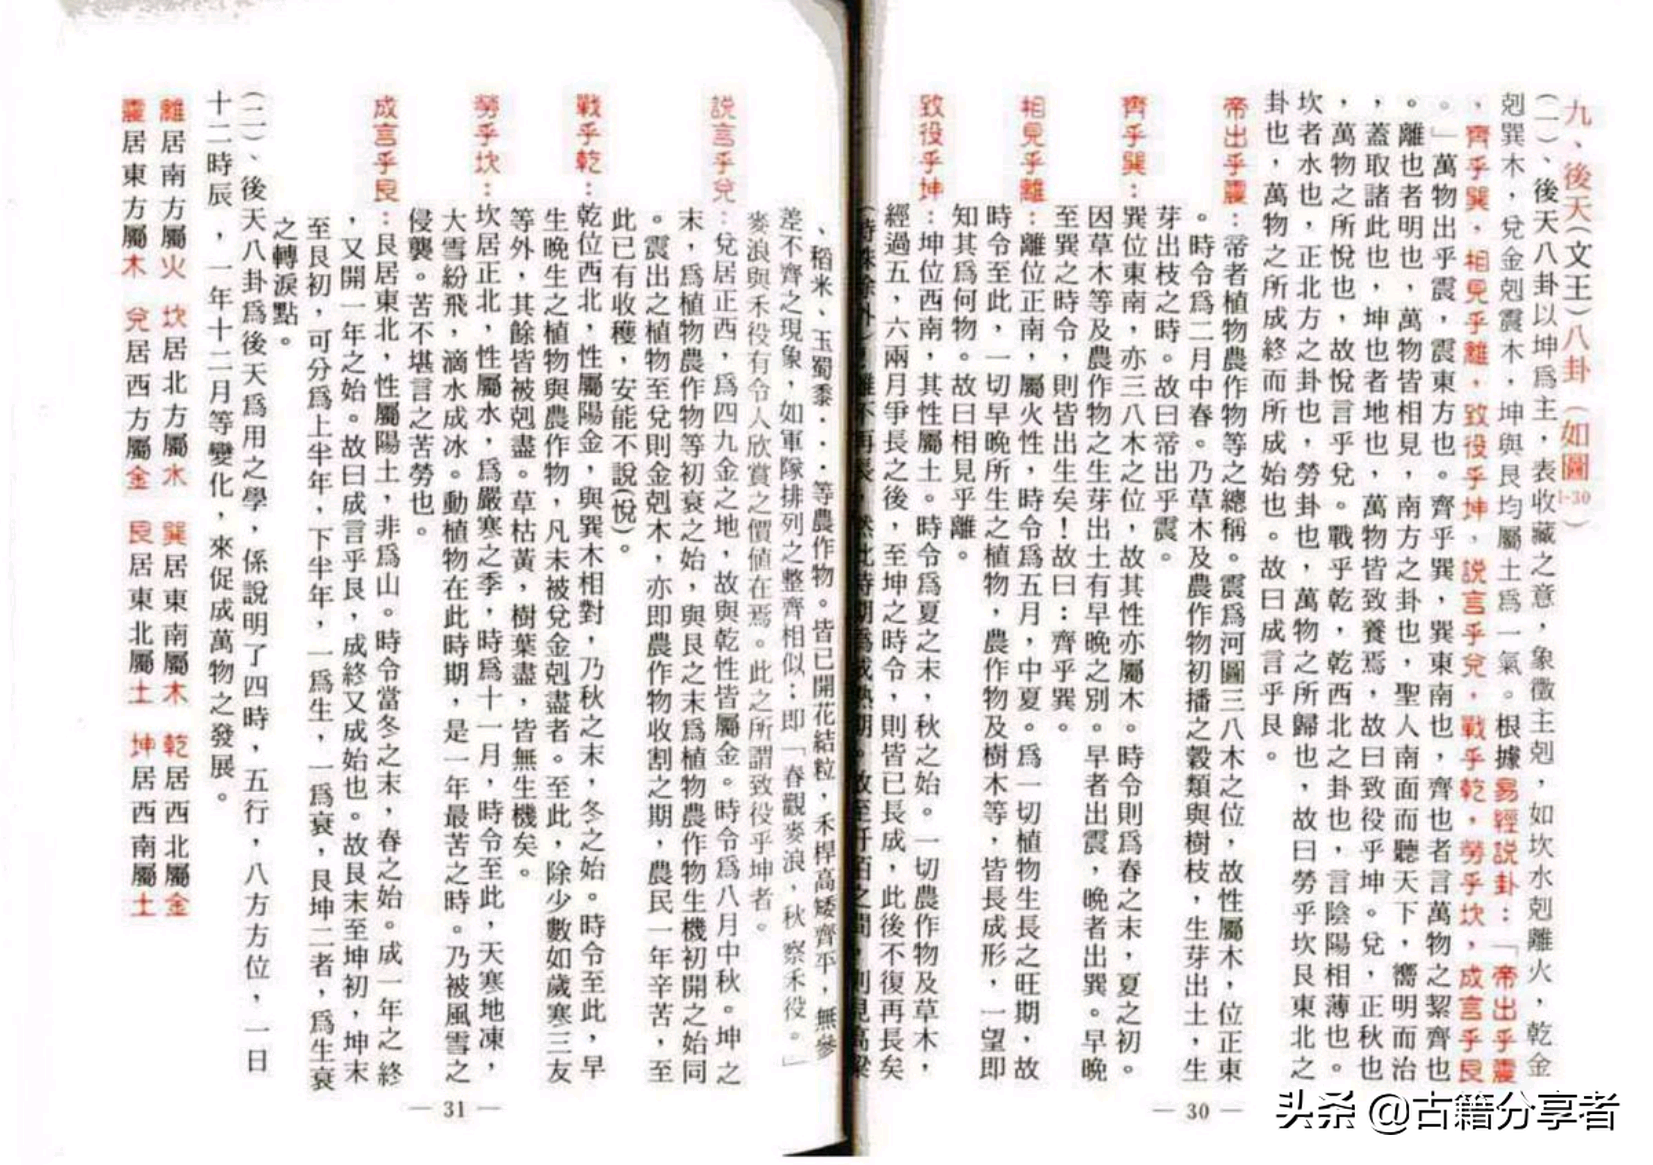 九、後天(文王)八卦(如圖1-30)
(一)、後天八卦以坤爲主，表收藏之意，象徵主剋，如坎水剋離火，乾金
剋巽木，兌金剋震木，坤與艮均屬土爲一氣。根據易經說卦：「帝出乎震
，齊乎巽，相見乎離，致役乎坤，說言乎兌，戰乎乾，勞乎坎，成言乎艮
。」萬物出乎震，震東方也。齊乎巽，巽東南也，齊也者言萬物之絜齊也
。離也者明也，萬物皆相見，南方之卦也，聖人南面而聽天下，嚮明而治
，蓋取諸此也，坤也者地也，萬物皆致養焉，故曰致役乎坤。兌，正秋也
，萬物之所悅也，故悅言乎兌。戰乎乾，乾西北之卦也，言陰陽相薄也。
坎者水也，正北方之卦也，勞卦也，萬物之所歸也，故曰勞乎坎艮東北之
卦也，萬物之所成終而所成始也。故曰成言乎艮。
帝出乎震：帝者植物農作物等之總稱。震爲河圖三八木之位，故性屬木，位正東
。時令爲二月中春。乃草木及農作物初播之穀類與樹枝，生芽出土，生
芽出枝之時。故曰帝出乎震。
齊乎巽：巽位東南，亦三八木之位，故其性亦屬木。時令則爲春之末，夏之初。
因草木等及農作物之生芽出土有早晚之別。早者出震，晚者出巽。早晚
至巽之時令，則皆出生矣！故曰：齊乎巽。
相見乎離：離位正南，屬火性，時令爲五月，中夏。爲一切植物生長之旺期，故
時令至此，一切早晚所生之植物，農作物及樹木等，皆長成形，一望即
知其爲何物。故曰相見乎離。
致役乎坤：坤位西南，其性屬土。時令爲夏之末，秋之始。一切農作物及草木，
經過五，六兩月爭長之後，至坤之時令，則皆已長成，此後不復再長矣
(特殊除外)！雖不再長，然此時期爲成熟期。故至阡陌之間，則見高粱
、稻米、玉蜀黍...等農作物。皆已開花結粒，禾桿高矮齊平，無參
差不齊之現象，如軍隊排列之整齊相似；即「春觀麥浪，秋察禾役。」
麥浪與禾役有令人欣賞之價值在焉。此之所謂致役乎坤者。
說言乎兌：兌居正西，爲四九金之地，故與乾性皆屬金。時令爲八月中秋。坤之
末，爲植物農作物等初衰之始，與艮之末爲植物農作物生機初開之始同
。震出之植物至兌則金剋木，亦即農作物收割之期，農民一年辛苦，至
此已有收穫，安能不說(悅)。
戰乎乾：乾位西北，性屬陽金，與巽木相對，乃秋之末，冬之始。時令至此，早
生晚生之植物與農作物，凡未被兌金剋盡者。至此，除少數如歲寒三友
等外，其餘皆被剋盡。草枯黃，樹葉盡，皆無生機矣。
勞乎坎：坎居正北，性屬水，爲嚴寒之季，時爲十一月，時令至此，天寒地凍，
大雪紛飛，滴水成冰。動植物在此時期，是一年最苦之時。乃被風雪之
侵襲。苦不堪言之苦勞也。
成言乎艮：艮居東北，性屬陽土，非爲山。時令當冬之末，春之始。成一年之終
，又開一年之始。故曰成言乎艮，成終又成始也。故艮末至坤初，坤末
至艮初，可分爲上半年，下半年，一爲生，一爲衰，艮坤二者，爲生衰
之轉淚點。
(二)、後天八卦爲後天爲用之學，係說明了四時，五行，八方方位，一日
十二時辰，一年十二月等變化，來促成萬物之發展。
離居南方屬火 坎居北方屬水 巽居東南屬木 乾居西北屬金
震居東方屬木 兌居西方屬金 艮居東北屬土 坤居西南屬土
— 30 —
— 31 —
头条 @古籍分享者